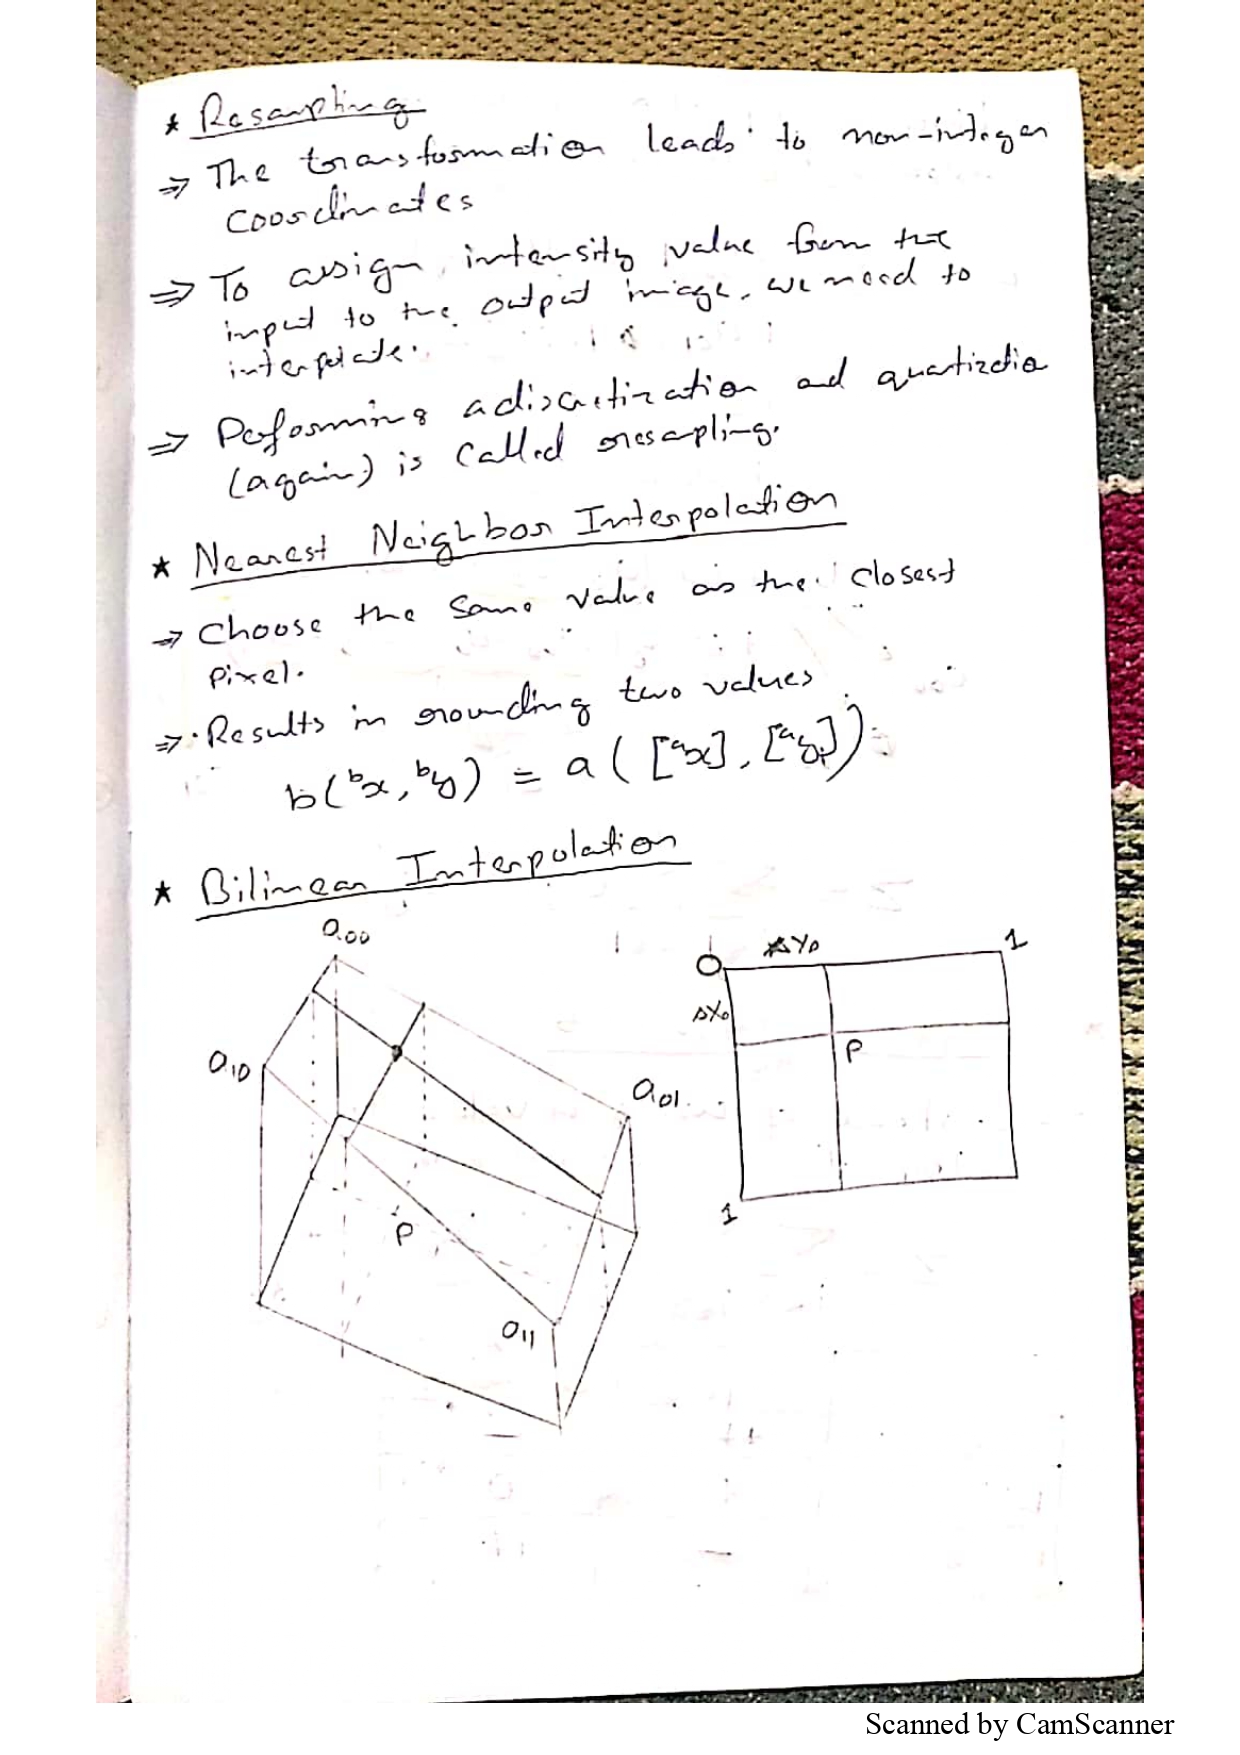 * Resampling
⇒ The transformation leads to non-integer
coordinates
⇒ To assign intensity value from the
input to the output image, we need to
interpolate.
⇒ Performing a discretization and quantizatio
(again) is called resampling.
* Nearest Neighbor Interpolation
⇒ Choose the same value as the closest
pixel.
⇒ Results in rounding two values
b(ᵇx, ᵇy) = a([ᵃx], [ᵃy])
* Bilinear Interpolation
a00
0 ΔY0 1
ΔX0
P
a10
a01
1
P
a11
Scanned by CamScanner